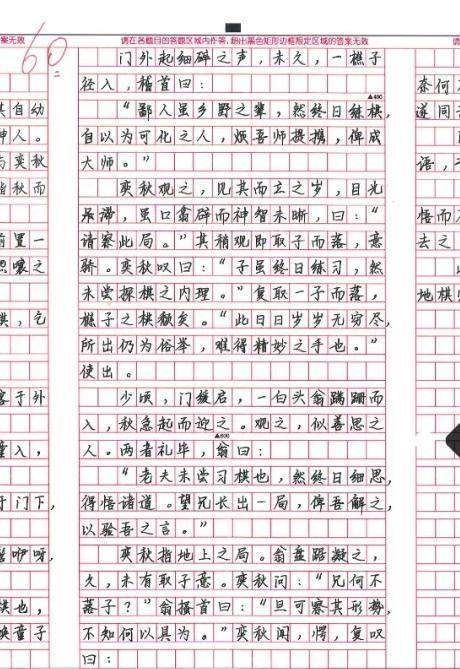 案无效
请在各题目的答题区域内作答,超出黑色矩形边框限定区域的答案无效
60
其自幼
神人。
与奕秋
皆秋而
前置一
照壤之
棋,乞
客于外
童入,
于门下,
髻咿呀,
棋也,
唤童子
门外起细碎之声,未久,一樵子
径入,稽首曰:
▲400
“鄙人虽乡野之辈,然终日练棋,
自以为可化之人,烦吾师提携,俾成
大师。”
奕秋观之,见其而立之岁,目光
呆滞,虽口翕辟而神智未晰,曰:“
请察此局。”其稍观即取子而落,意
骄。奕秋叹曰:“子虽终日练习,然
未尝探棋之内理。”复取一子而落,
樵子之棋颓矣。“此日日岁岁无穷尽,
所出仍为俗举,难得精妙之手也。”
使出。
少顷,门缓启,一白头翁蹒跚而
入,秋急起而迎之。观之,似善思之
人。两者礼毕,翁曰:
▲600
“老夫未尝习棋也,然终日细思,
得悟诸道。望兄长出一局,俾吾解之,
以验吾之言。”
奕秋指地上之局。翁盘踞凝之,
久,未有取子意。奕秋问:“兄何不
落子?”翁搔首曰:“旦可察其形势,
不知何以具为。”奕秋闻,愕,复叹
曰:
奈何
遂同
语,
悟而
去之
地棋